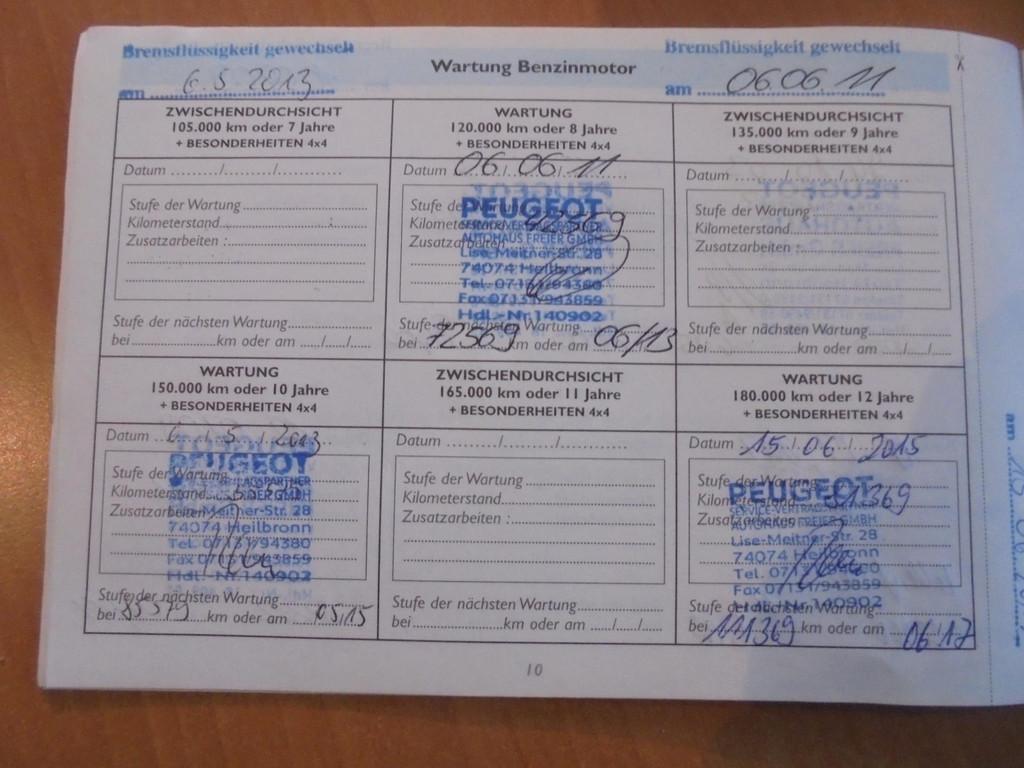 Bremsflüssigkeit gewechselt
am 6.5.2013
Wartung Benzinmotor
Bremsflüssigkeit gewechselt
am 06.06.11
ZWISCHENDURCHSICHT
105.000 km oder 7 Jahre
+ BESONDERHEITEN 4x4
Datum ........./........./............
Stufe der Wartung
Kilometerstand
Zusatzarbeiten :
Stufe der nächsten Wartung
bei ............ km oder am ..../..../....
WARTUNG
120.000 km oder 8 Jahre
+ BESONDERHEITEN 4x4
Datum 06/06/11
Stufe der Wartung
Kilometerstand
Zusatzarbeiten
PEUGEOT
AUTOHAUS FREIER GMBH
Lise-Meitner-Str. 28
74074 Heilbronn
Tel. 07131/94380
Fax 07131/943859
Hdl.-Nr. 140902
Stufe der nächsten Wartung
bei 72569 km oder am 06/13
ZWISCHENDURCHSICHT
135.000 km oder 9 Jahre
+ BESONDERHEITEN 4x4
Datum ........./........./............
Stufe der Wartung
Kilometerstand
Zusatzarbeiten :
Stufe der nächsten Wartung
bei ............ km oder am ..../..../....
WARTUNG
150.000 km oder 10 Jahre
+ BESONDERHEITEN 4x4
Datum 6./5/2013
Stufe der Wartung
Kilometerstand
Zusatzarbeiten
PEUGEOT
Lise-Meitner-Str. 28
74074 Heilbronn
Tel. 07131/94380
Fax 07131/943859
Hdl.-Nr. 140902
Stufe der nächsten Wartung
bei km oder am 05/15
ZWISCHENDURCHSICHT
165.000 km oder 11 Jahre
+ BESONDERHEITEN 4x4
Datum ........./........./............
Stufe der Wartung
Kilometerstand
Zusatzarbeiten :
Stufe der nächsten Wartung
bei ............ km oder am ..../..../....
WARTUNG
180.000 km oder 12 Jahre
+ BESONDERHEITEN 4x4
Datum 15/06/2015
Stufe der Wartung
Kilometerstand 81369
Zusatzarbeiten
PEUGEOT
SERVICE-VERTRAGSPARTNER
AUTOHAUS FREIER GMBH
Lise-Meitner-Str. 28
74074 Heilbronn
Tel. 07131/94380
Fax 07131/943859
Hdl.-Nr. 140902
Stufe der nächsten Wartung
bei 111369 km oder am 06/17
10
am